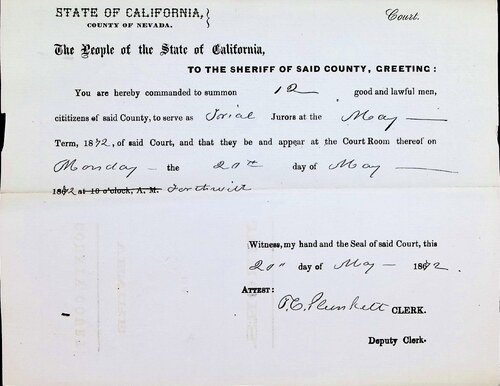 STATE OF CALIFORNIA,} Court.
COUNTY OF NEVADA.
The People of the State of California,
TO THE SHERIFF OF SAID COUNTY, GREETING:
You are hereby commanded to summon 12 good and lawful men,
cititizens of said County, to serve as Trial Jurors at the May
Term, 1872, of said Court, and that they be and appear at the Court Room thereof on
Monday the 20th day of May
1872 at 10 o'clock, A. M. Forthwith
Witness, my hand and the Seal of said Court, this
20" day of May 1872.
ATTEST:
T.C. Plunkett CLERK.
Deputy Clerk.